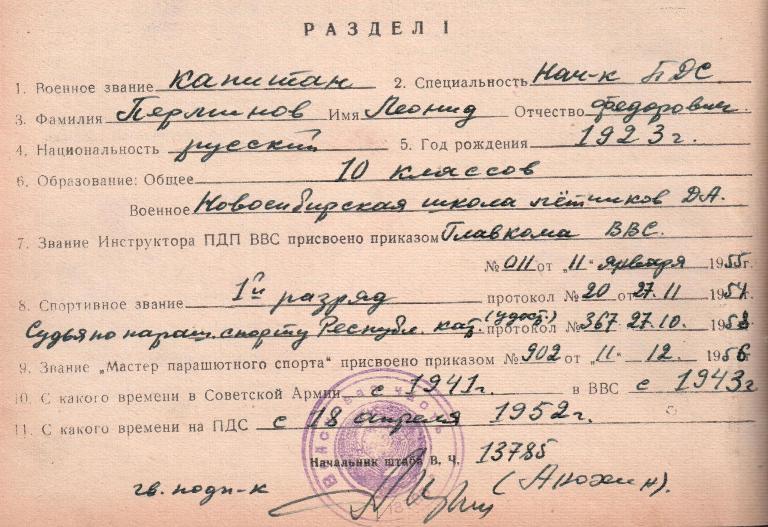 РАЗДЕЛ I
1. Военное звание капитан 2. Специальность Нач-к ПДС
3. Фамилия Перминов Имя Леонид Отчество Федорович
4. Национальность русский 5. Год рождения 1923 г.
6. Образование: Общее 10 классов
Военное Новосибирская школа лётчиков ДА.
7. Звание Инструктора ПДП ВВС присвоено приказом Главкома ВВС.
№ 011 от „11" января 1955 г.
8. Спортивное звание 1й разряд протокол № 20 от 27.11 1954 г.
Судья по параш. спорту Республ. кат. (удост.) протокол № 367 27.10. 1958
9. Звание „Мастер парашютного спорта" присвоено приказом № 902 от „11" 12. 1956
10. С какого времени в Советской Армии с 1941 г. в ВВС с 1943 г
11. С какого времени на ПДС с 18 апреля 1952 г.
Начальник штаба В. Ч. 13785
гв. подп-к (Анохин).